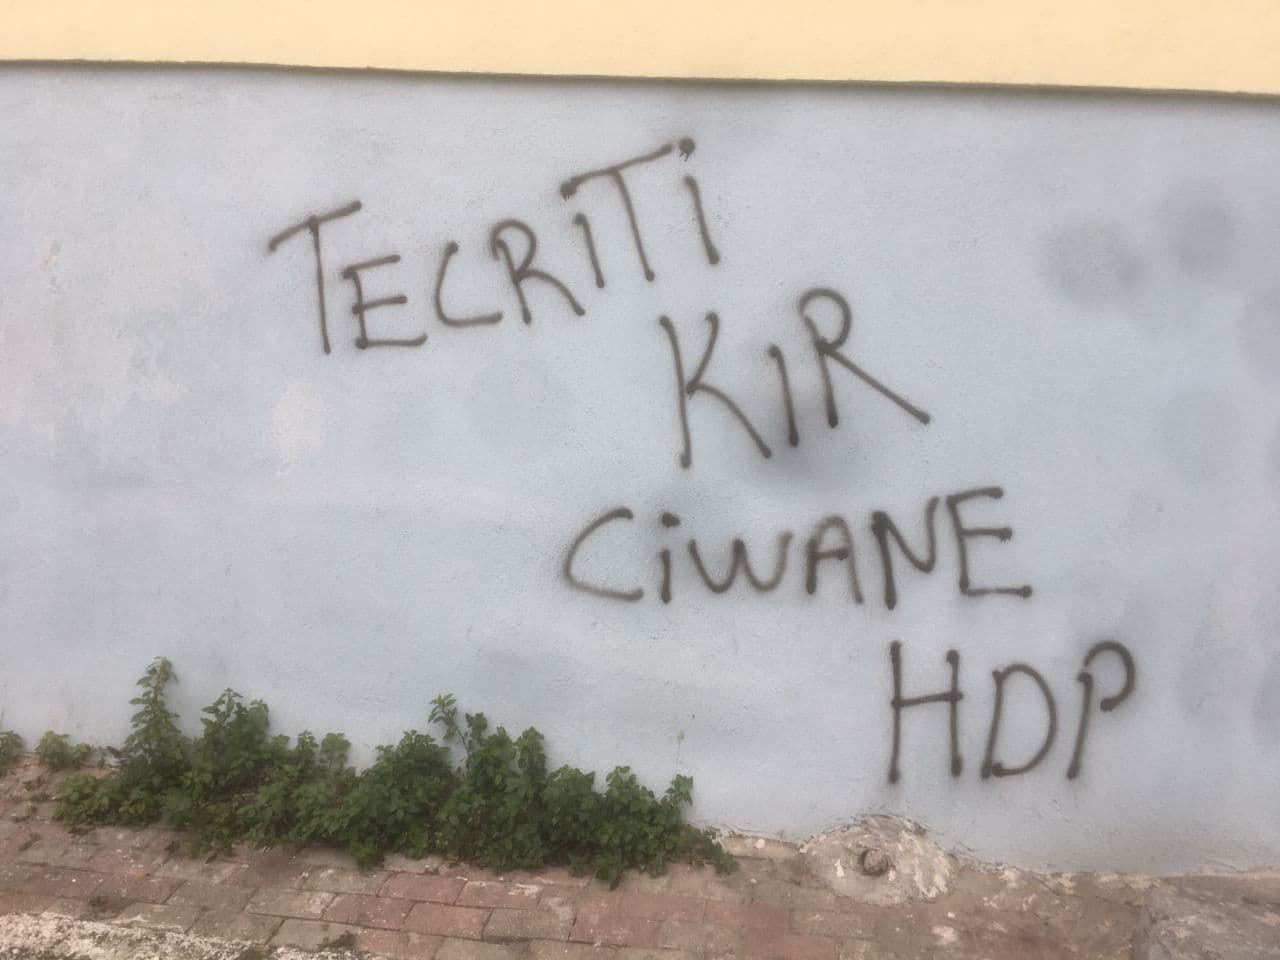 TECRİTİ
KIR
CİWANE
HDP